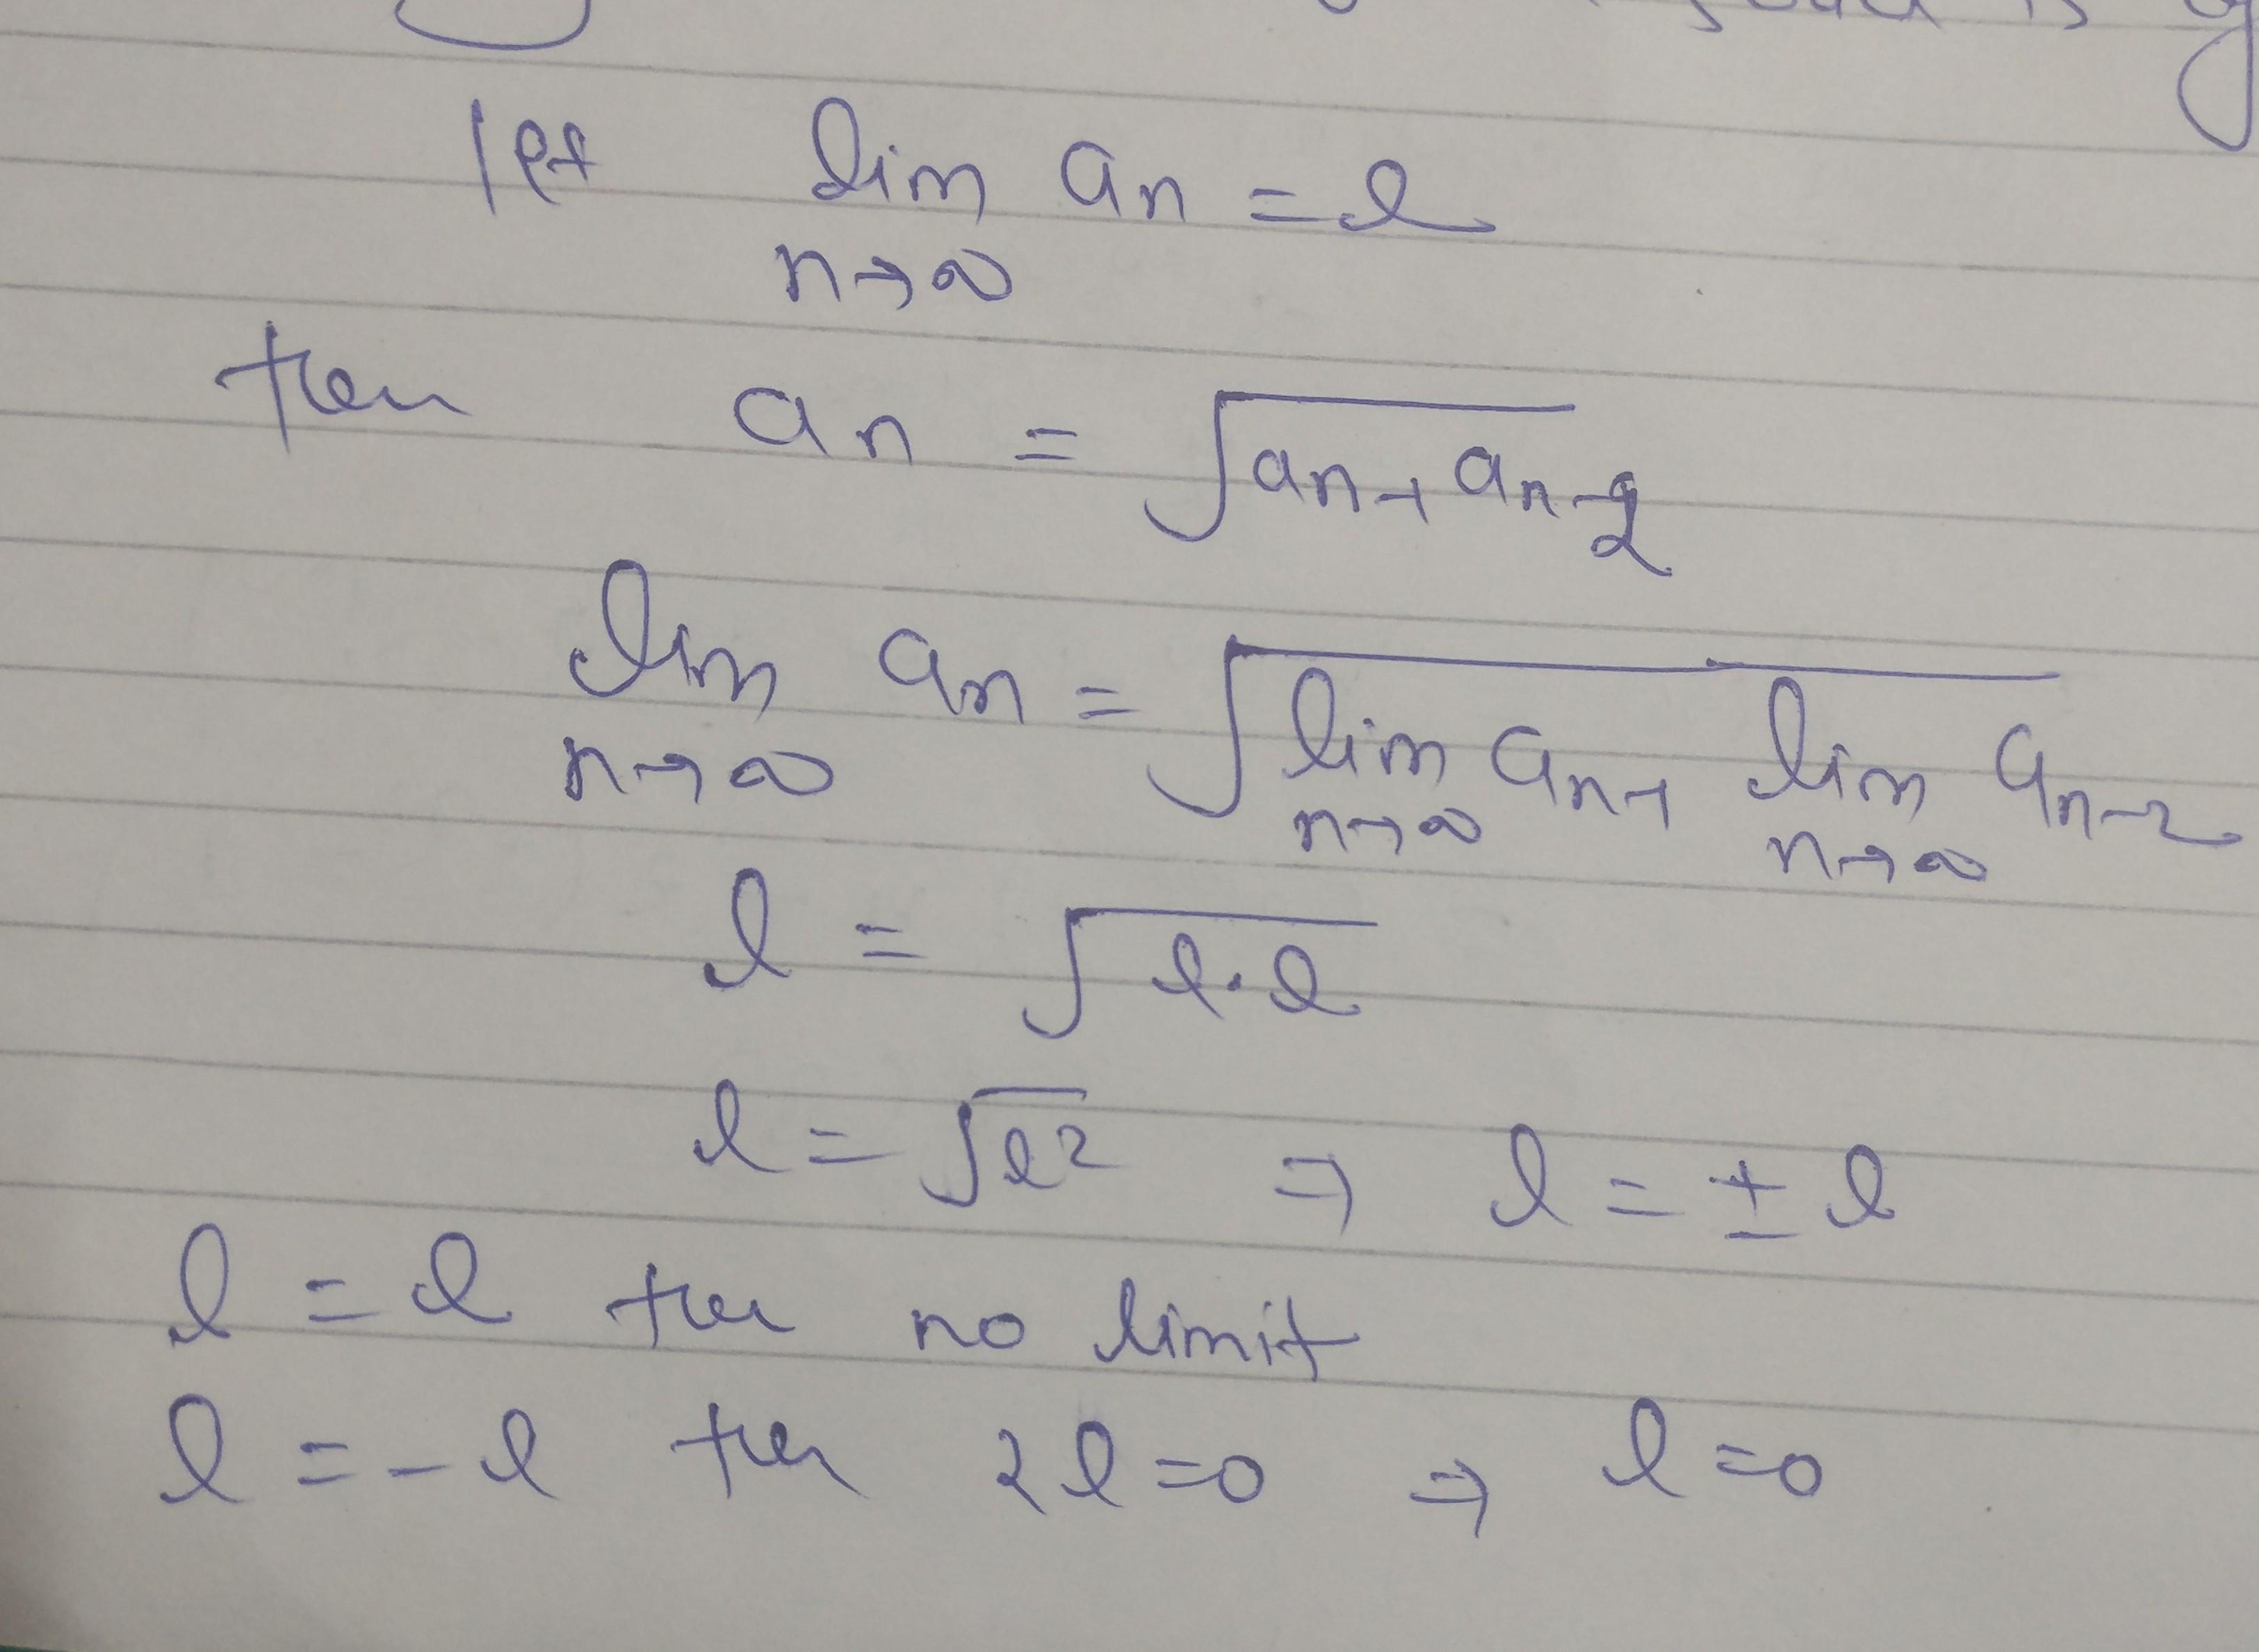 is
let lim an = l
n→∞
then an = √an-1 an-2
lim an = √lim an-1 lim an-2
n→∞ n→∞ n→∞
l = √l·l
l = √l² ⇒ l = ± l
l = l then no limit
l = -l then 2l = 0 ⇒ l = 0